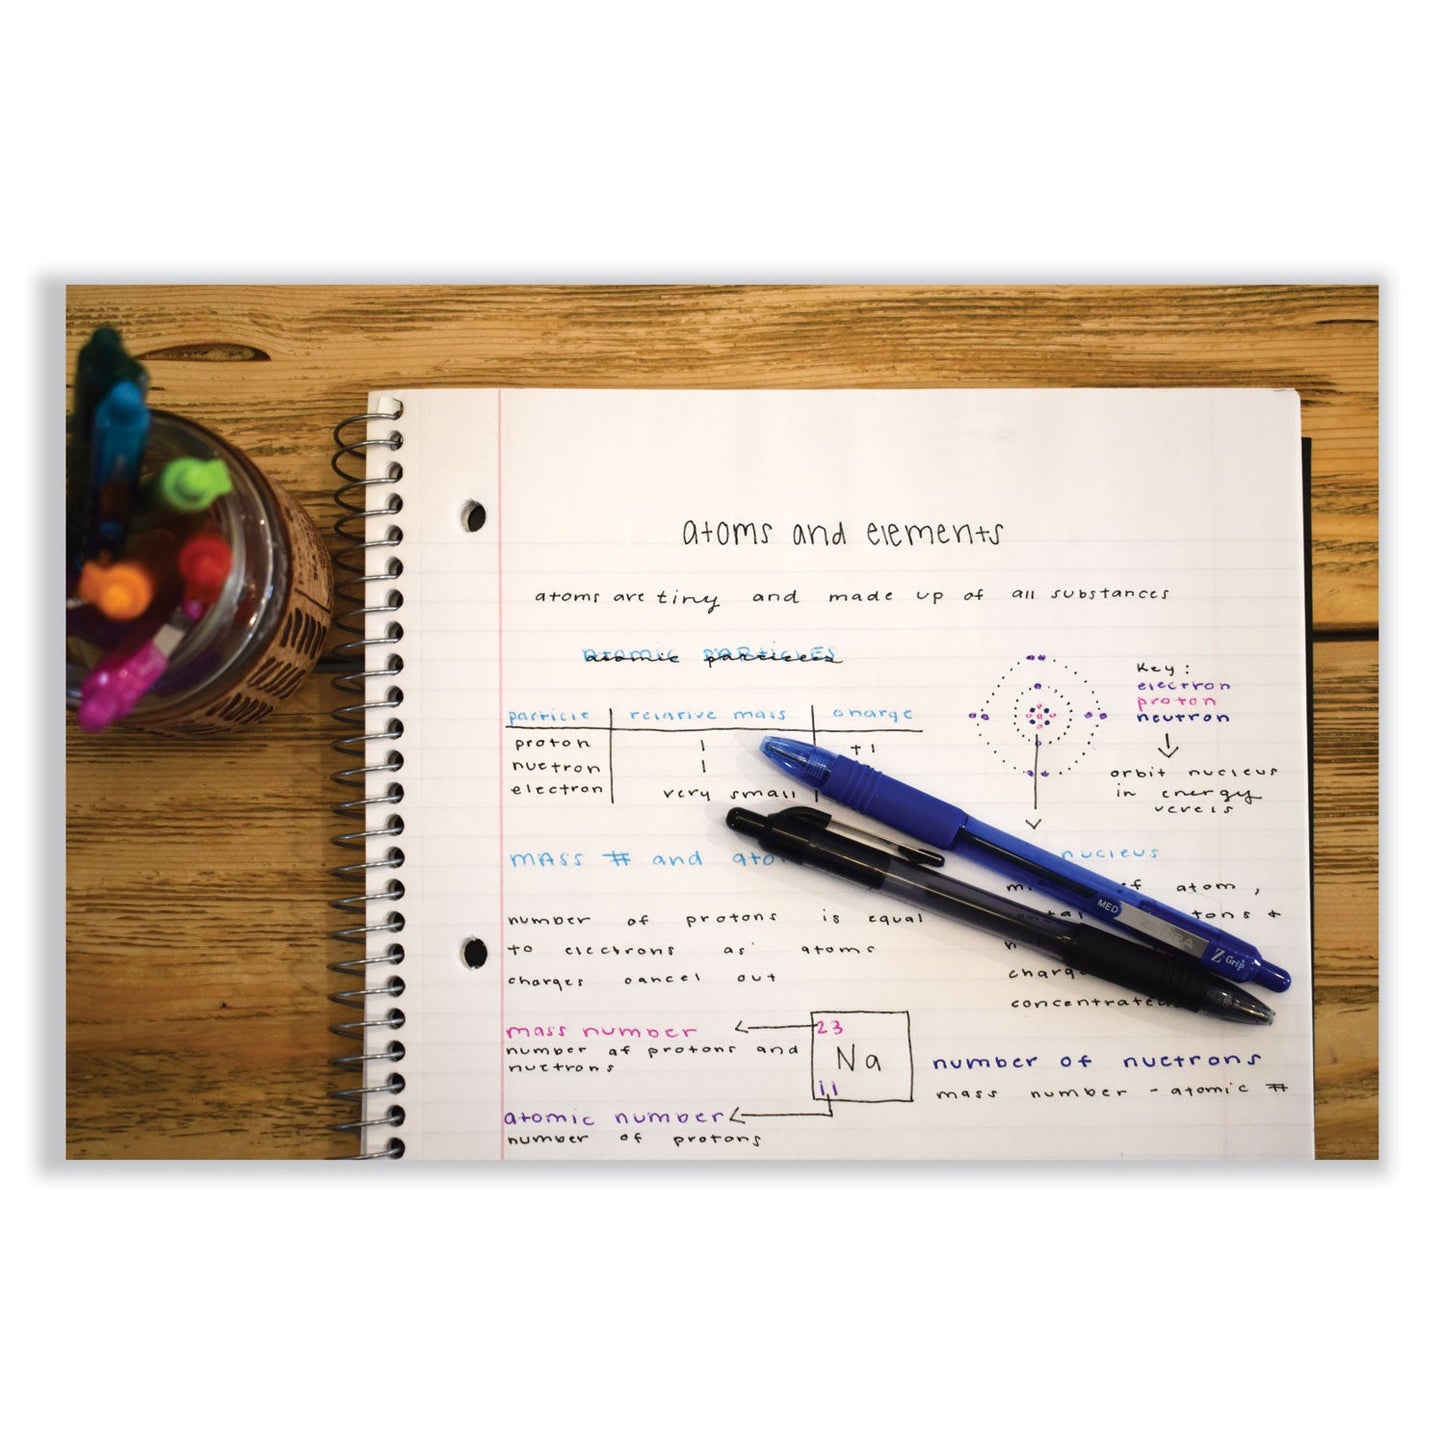 atoms and elements
atoms are tiny and made up of all substances
atomic particles
particle relative mass charge
proton 1 +1
nuetron 1
electron very small
Key:
electron
proton
neutron
orbit nucleus
in energy
verels
mass # and
nucleus
of atom,
+
concentrated
number of protons is equal
to electrons as atoms
charges cancel out
mass number
number of protons and
nuetrons
23
Na
11
atomic number
number of protons
number of nuetrons
mass number - atomic #
MED
ZEBRA
Z-Grip